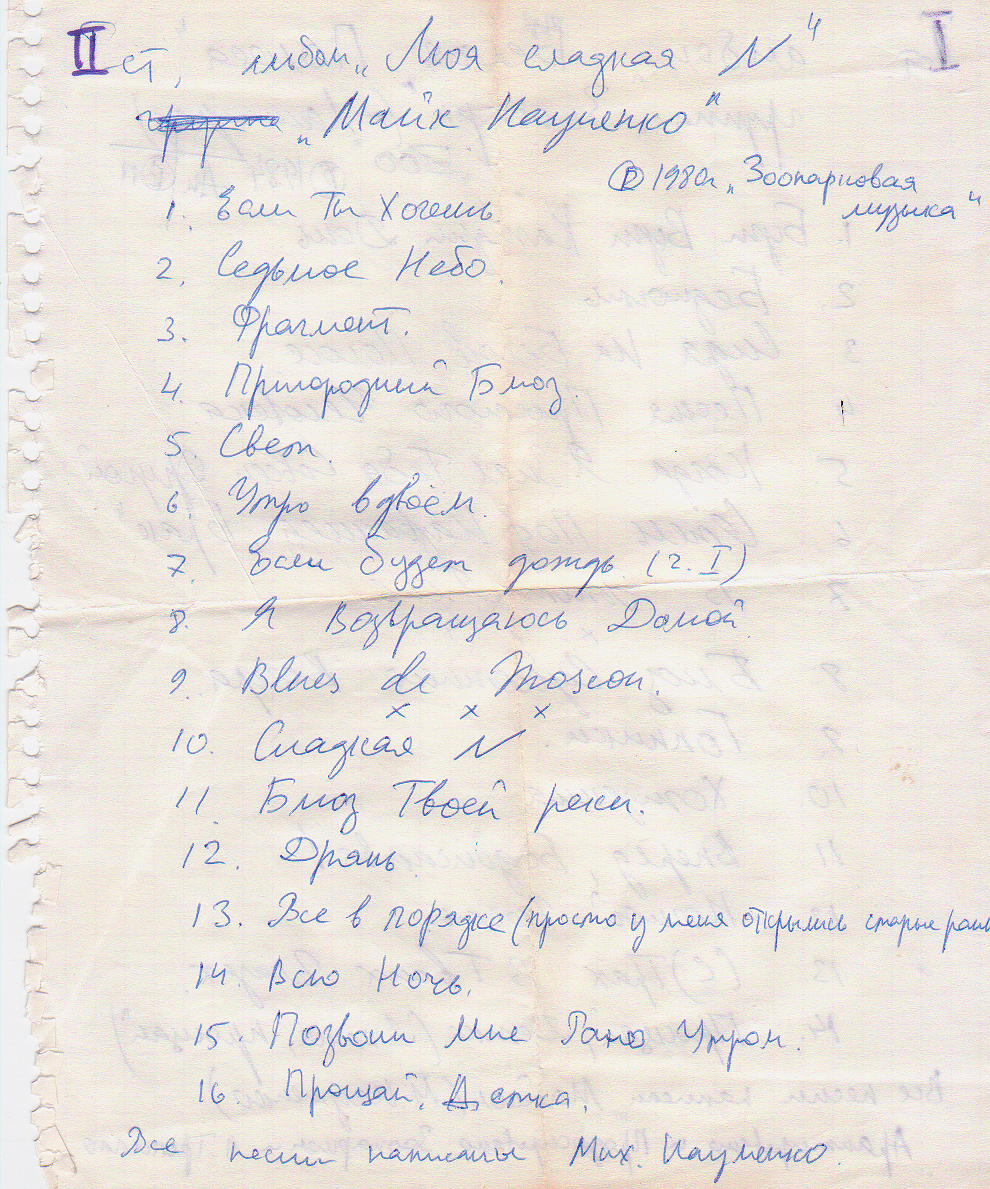 II ст, альбом „Моя сладкая N"
I
группа „Майк Науменко"
Ⓟ 1980г „Зоопарковая
музыка"
1. Если Ты Хочешь.
2. Седьмое Небо.
3. Фрагмент.
4. Пригородний Блюз.
5. Свет.
6. Утро вдвоём.
7. Если будет дождь (ч. I)
8. Я Возвращаюсь Домой
9. Blues de Moscou.
x x x
10. Сладкая N
11. Блюз Твоей реки.
12. Дрянь.
13. Все в порядке (просто у меня открылись старые раны
14. Всю Ночь.
15. Позвони Мне Рано Утром.
16. Прощай, Детка.
Все песни написаны Мих. Науменко.